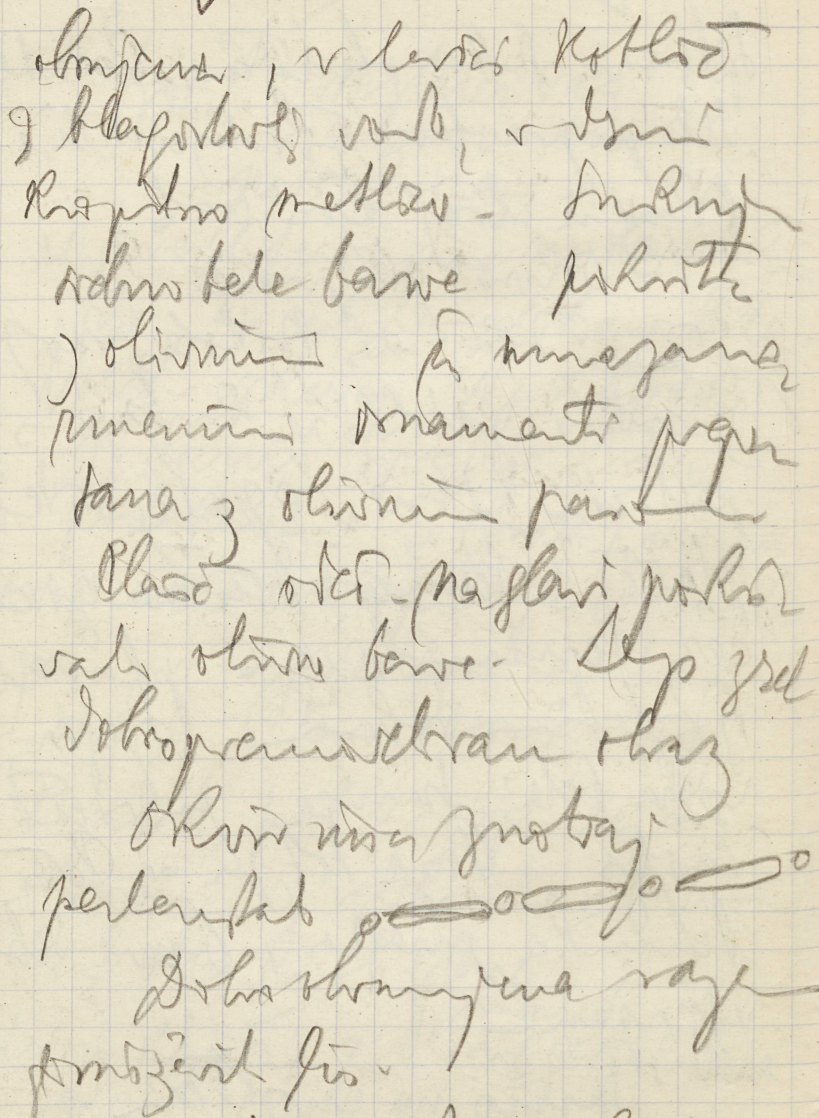 obrnjena, v levici Kotlič
z blagoslovlj. vodo, v desni
Kropilno metlico - Suknja
vidno bele barve pokrita
z olivnimi in
rmenimi ornamenti prepa
sana z olivnim pasom
Plašč rdeč - na glavi pokri
valo olivne barve - Lep zrel
dobro premodeliran obraz
Okvir nima znotraj
perlenstab
Dobro ohranjena razen